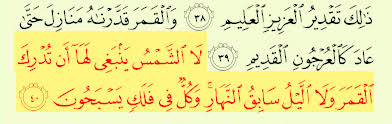 ذَٰلِكَ تَقْدِيرُ ٱلْعَزِيزِ ٱلْعَلِيمِ ٣٨ وَٱلْقَمَرَ قَدَّرْنَٰهُ مَنَازِلَ حَتَّىٰ
عَادَ كَٱلْعُرْجُونِ ٱلْقَدِيمِ ٣٩ لَا ٱلشَّمْسُ يَنۢبَغِى لَهَآ أَن تُدْرِكَ
ٱلْقَمَرَ وَلَا ٱلَّيْلُ سَابِقُ ٱلنَّهَارِ ۚ وَكُلٌّ فِى فَلَكٍ يَسْبَحُونَ ٤٠